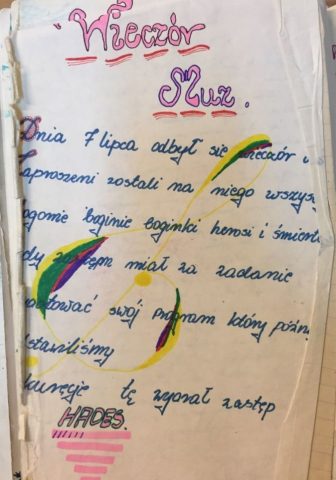 Wieczór
Muz.
Dnia 7 lipca odbył się wieczór
zaproszeni zostali na niego wszys
ogowie boginie boginki herosi i śmierte
dy zastęp miał za zadanie
swój program który późn
stawiliśmy
kurecję tę wygrał zastęp
HADES.